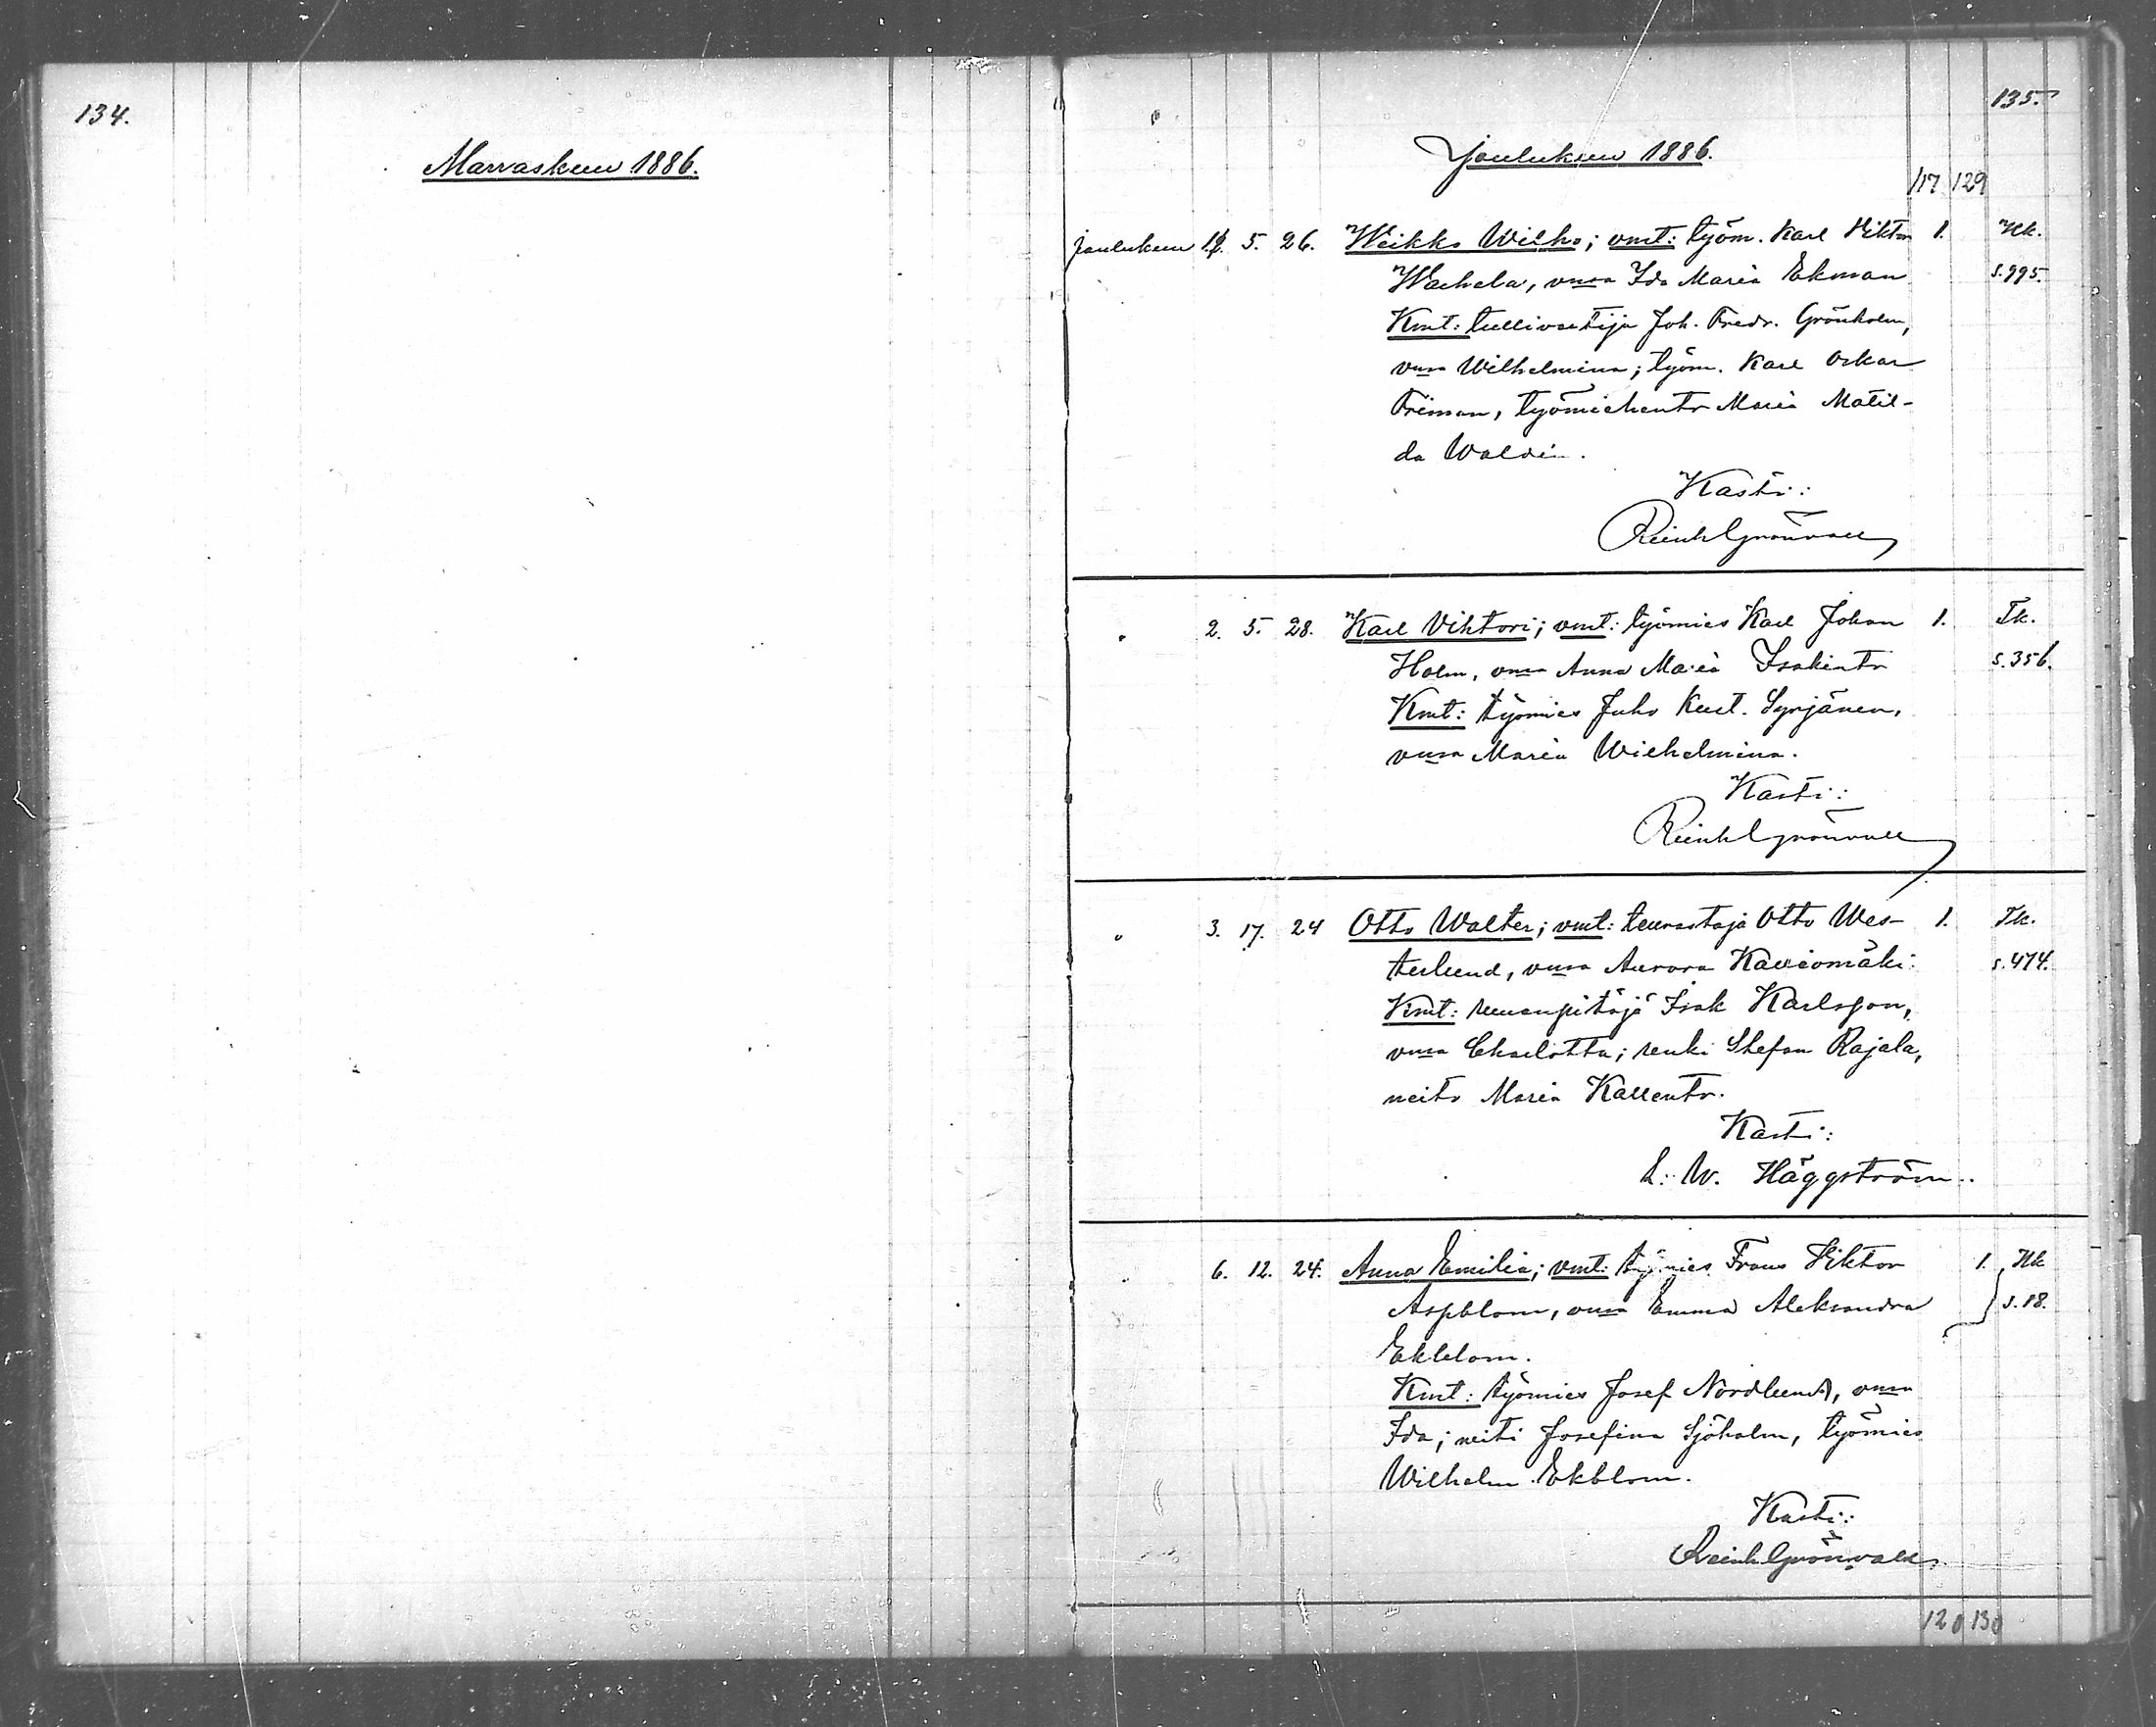 134.
Marraskuu 1886.
135.
Joulukuu 1886.
117 129
Joulukuu 1. 5. 26. Weikko Wilho; vmt: työm. Karl Viktor 1. Uk.
Wachela, vmsa Ida Maria Ekman s. 995.
Kmt: tullivartija Joh. Fredr. Grönholm,
vmsa Wilhelmina; työm. Karl Oskar
Friman, työmiehentr Maria Matil-
da Waldin.
Kasti:
Reinh Grönvall
" 2. 5. 28. Karl Vihtori; vmt: työmies Karl Johan 1. Tk.
Holm, vmsa Anna Maria Isakintr s. 356.
Kmt: työmies Juho Kust. Syrjänen,
vmsa Maria Wilhelmina.
Kasti:
Reinh Grönvall
" 3. 17. 24 Otto Walter; vmt: teurastaja Otto Wes- 1. Tk.
terlund, vmsa Aurora Kaviomäki s. 474.
Kmt: pitäjä Isak Karlsson,
vmsa Charlotta; renki Stefan Rajala,
neito Maria Kallentr.
Kasti:
K. W. Häggström.
" 6. 12. 24. Anna Emilia; vmt: työmies Frans Viktor 1. Uk
Aspblom, vmsa Emma Aleksandra s. 18.
Ekblom.
Kmt: työmies Josef Nordlund, vmsa
Ida; neiti Josefina Sjöholm, työmies
Wilhelm Ekblom.
Kasti:
Reinh Grönvall
120 130